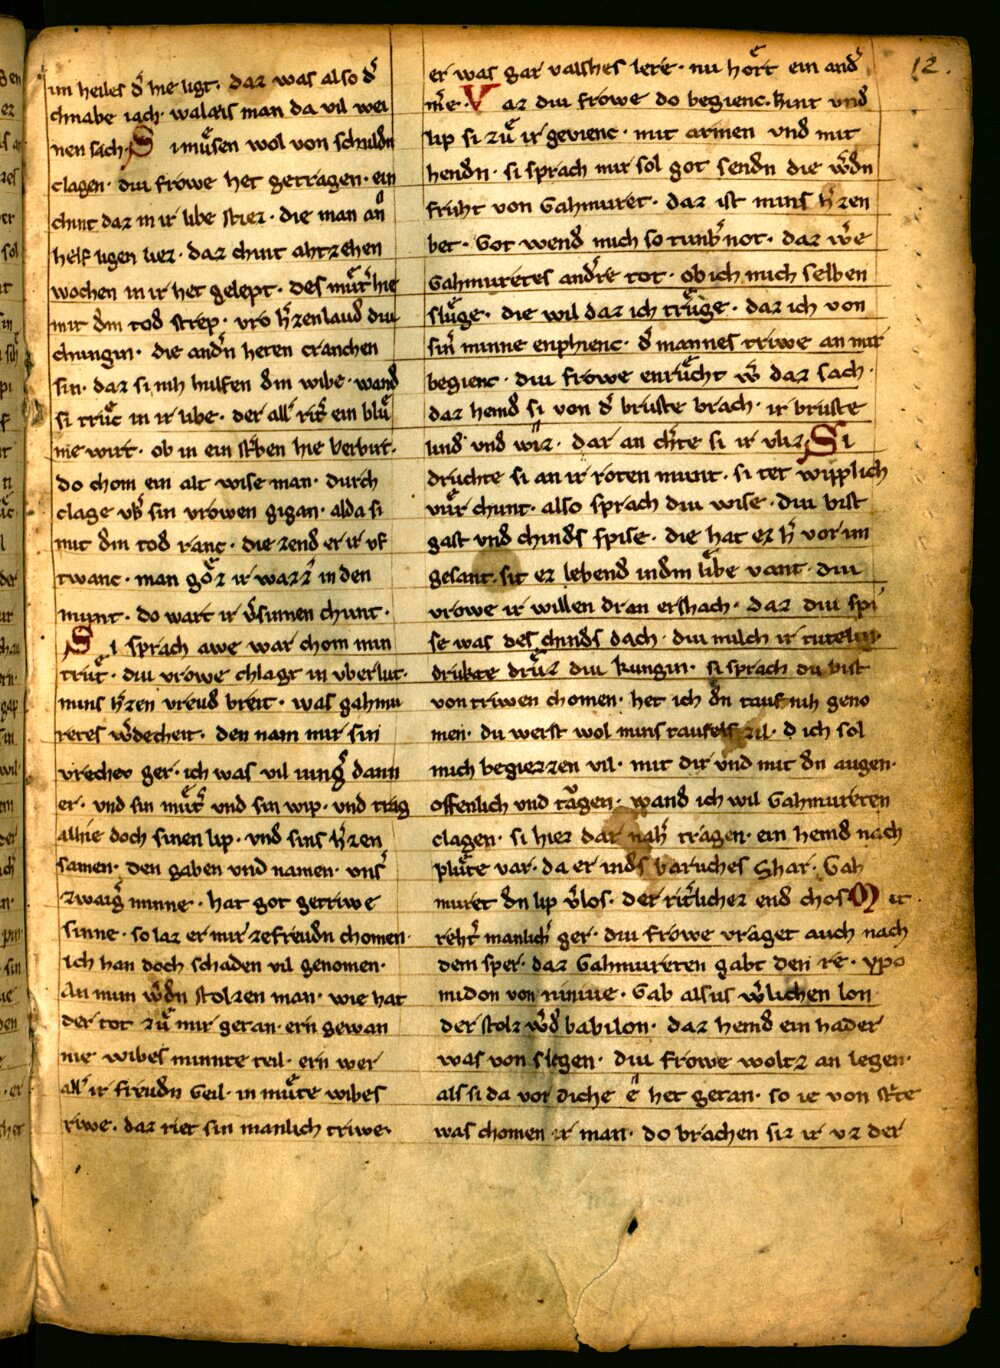 im heiles d͛ hie ligt · daz was also d͛
chnabe iach · walæis man da vil wei
nen sach · Si muͤsen wol von schuldn
clagen · diu frowe het getragen · ein
chint daz in ir libe stiez · die man an
helf ligen liez · daz chint ahtzehen
wochen in ir het gelept · des muͤt͛ hie
mit dm tod strep · vro h͛zenlaud diu
chungin · die and͛n heten cranchen
sin · daz si nih hulfen dm wibe · wand
si truͤc in ir libe · der all͛ rit͛ ein bluͤ
me wirt · ob in ein st͛ben hie verbirt ·
do chom ein alt wise man · durch
clage vb͛ sin vrowen gigan · alda si
mit dm tod ranc · die zend er ir vf
twanc · man goͤz ir wazz͛ in den
munt · do wart ir v͛sinnen chunt ·
Si sprach awe war chom min
truͤt · diu vrowe chlagt in vberlut ·
mins h͛zen vreud breit · was gahmu
retes w͛decheit · den nam mir sin
vrecher ger · ich was vil iung͛ dann
er · vnd sin muͤt͛ vnd sin wip · vnd trag
alhie doch sinen lip · vnd sins h͛zen
samen · den gaben vnd namen · vns͛
zwaig͛ minne · hat got getriwe
sinne · so laz er mir ze freudn chomen ·
ich han doch schaden vil genomen ·
An mim w͛dn stolzen man · wie hat
der tot zuͤ mir getan · ern gewan
nie wibes minnte teil · ern wer
all͛ ir freudn Geil · in muͤte wibes
riwe · daz riet sin manlich triwe ·
er was gar valshes lere · nu hoͤrt ein and͛
m͛e · Var diu frowe do begienc · kint vnd
lip si zuͤ ir gevienc · mit armen vnd mit
hendn · si sprach mir sol got sendn die w͛dn
fruht von Gahmuret · daz ist mins h͛zen
bet · Got wend mich so tunb͛ not · daz w͛e
Gahmuretes and͛re tot · ob ich mich selben
sluͤge · die wil daz ich truͤge · daz ich von
sin͛ minne enphienc · d͛ mannes triwe an mir
begienc · diu frowe enruͤcht w͛ daz sach ·
daz hemd si von d͛ bruste brach · ir bruste
lind vnd wiz · dar an ch͛te si ir vliz Si
druchte si an ir roten munt · si tet wiplich
vuͤr chunt · also sprach diu wise · diu bist
gast vnd chinds spise · die hat er h͛ vor im
gesant · sit er lebend indm libe vant · diu
vrowe ir willen dran ershach · daz diu spi
se was des chinds dach · diu milch ir tutelin
drukte druͤz diu kungin · si sprach du bist
von triwen chomen · het ich dn tauf nih geno
men · du werst wol mins taufes zil · d ich sol
mich begiezzen vil · mit dir vnd mit dn augen ·
offenlich vnd taͮgen · wand ich wil Gahmureten
clagen · si hiez dar nah͛ tragen · ein hemd nach
pluͤte var · da er inds baruches shar · Gah
muret dn lip v͛los · der rit͛licher end chos Mit
reht͛ manlich͛ ger · diu frowe vraget auch nach
dem sper · daz Gahmureten gabt den re · ypo
midon von niniue · Gab alsus w͛lichen lon
der stolz w͛d babilon · daz hemd ein hader
was von slegen · diu frowe woltz an legen ·
als si da vor diche e het getan · so ie von st͛te
was chomen ir man · do brachen siz ir vz der
12.